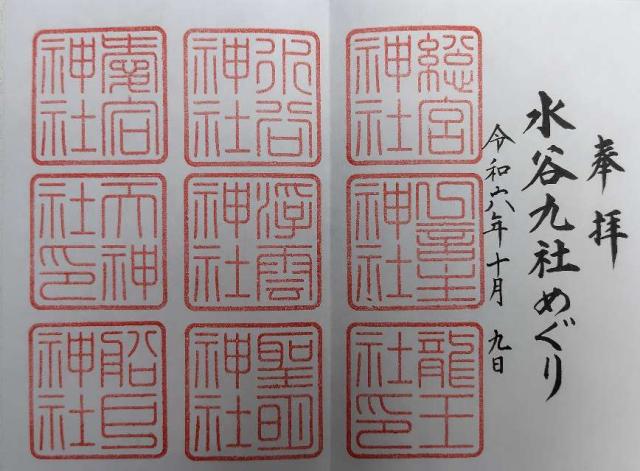 奉拝
水谷九社めぐり
令和六年十月 九日
総宮神社
一言主神社
龍王社印
水谷神社
浮雲神社
聖明神社
愛宕神社
天神社印
船戸神社